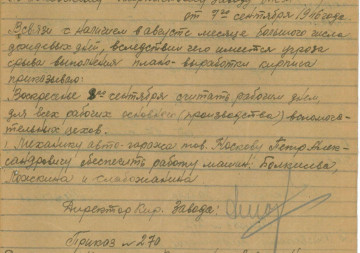 от 7го сентября 1946 года.
В связи с наличием в августе месяце большого числа
дождевых дней, вследствии чего имеется угроза
срыва выполнения плана выработки кирпича
приказываю:
Воскресенье 8го сентября считать рабочим днем,
для всех рабочих основного (производства) вспомога-
тельных цехов.
Механику авто-гаража тов. Носкову Петр Алек-
сандровичу обеспечить работу машин:
и
Директор Кир. Завода:
Приказ № 270